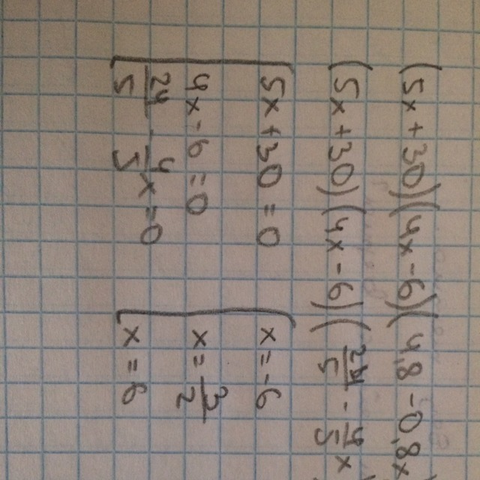 (5x+30)(4x-6)(4,8-0,8x
(5x+30)(4x-6)(24/5-4/5x
[5x+30=0 [x=-6
4x-6=0 x=3/2
24/5-4/5x=0 x=6